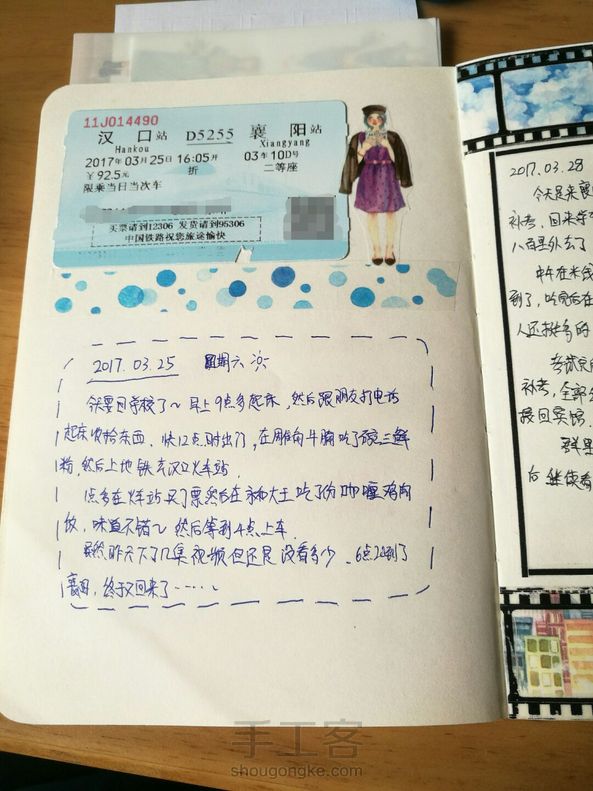 11J014490
汉 口 站 D5255 襄 阳 站
Hankou Xiangyang
2017年03月25日 16:05开 03车10D号
￥92.5元 折 二等座
限乘当日当次车
买票请到12306 发货请到95306
中国铁路祝您旅途愉快
2017.03.25 星期六
今天要回学校了～ 早上9点多起床,然后跟朋友打电话
起床收拾东西. 快12点时出门,在周黑鸭 吃了碗三鲜
粉,然后上地铁去汉口火车站.
点多在火车站买了票然后在永和大王吃了份咖喱鸡肉
饭,味道不错～ 然后等到4点上车.
虽然昨天下了几集视频但还是没看多少. 6点 到了
襄阳,终于又回来了······
2017.03.28
今天是来襄
补考,回来学
八百里外去了
中午在米线
到了,吃完后在
人还挺多的
考试完
补考,全部
接回宾馆.
后继续看
手工客
shougongke.com